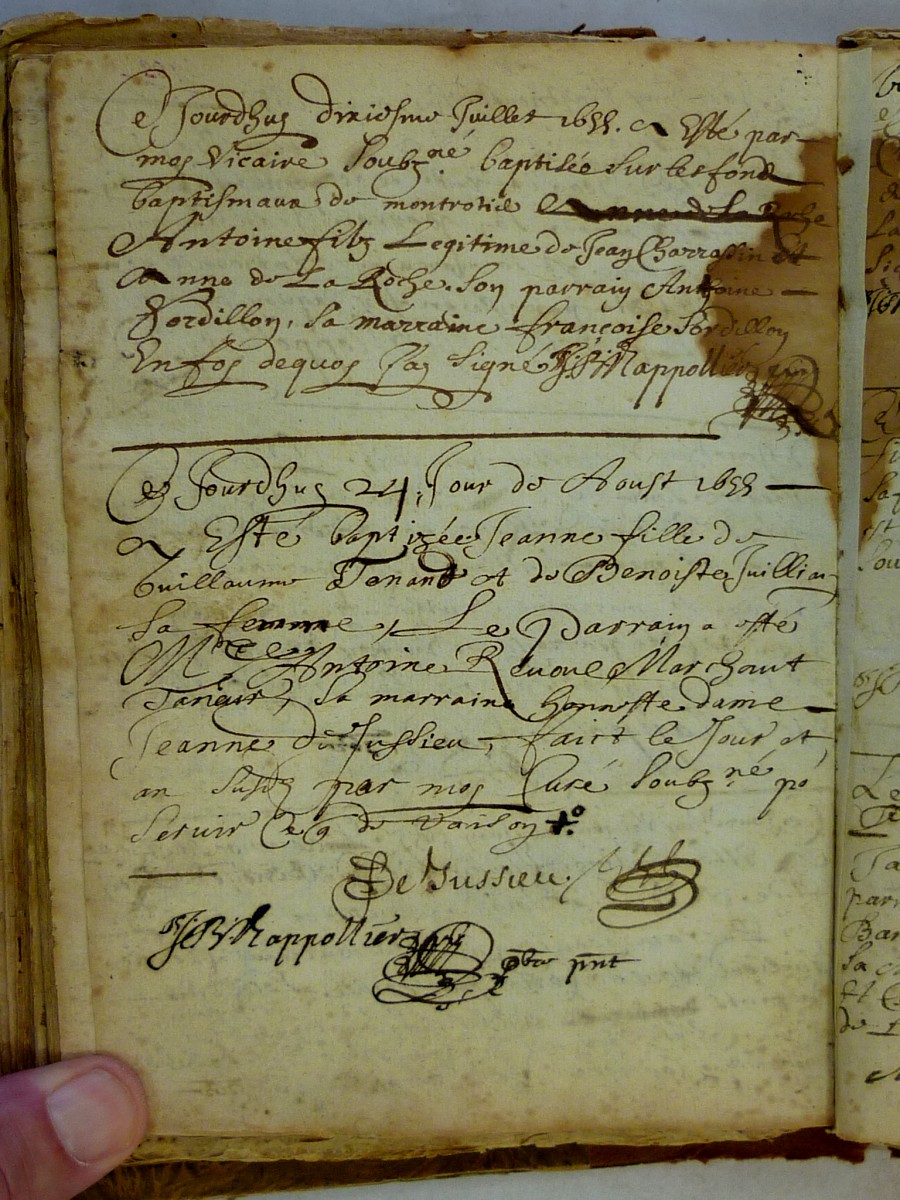 Ce Jourdhuy dixiesme Juillet 1655. a Esté par
moy Vicaire soubzné baptisée sur les fond
baptismaux de montrotié
Antoine filz Legitime de Jean Charrassin et
Anne de La Roche. Son parrain Anthoine
Sordillon, sa marraine françoise Sordillon
En foy dequoy J'ay signé J.B. Rappollier
Ce Jourdhuy 24, Jour de Aoust 1655
a Esté baptizée Jeanne fille de
Guillaume Tenand et de Benoiste Juillian
sa femme, Le Parrain a esté
Antoine Revoul Marchant
Taneur, sa marraine honneste dame
Jeanne de Jussieu, faict le Jour et
an susdz par moy Curé soubzné po
servir Ce q de raison
De Jussieu.
J.B. Rappollier
pbre pnt